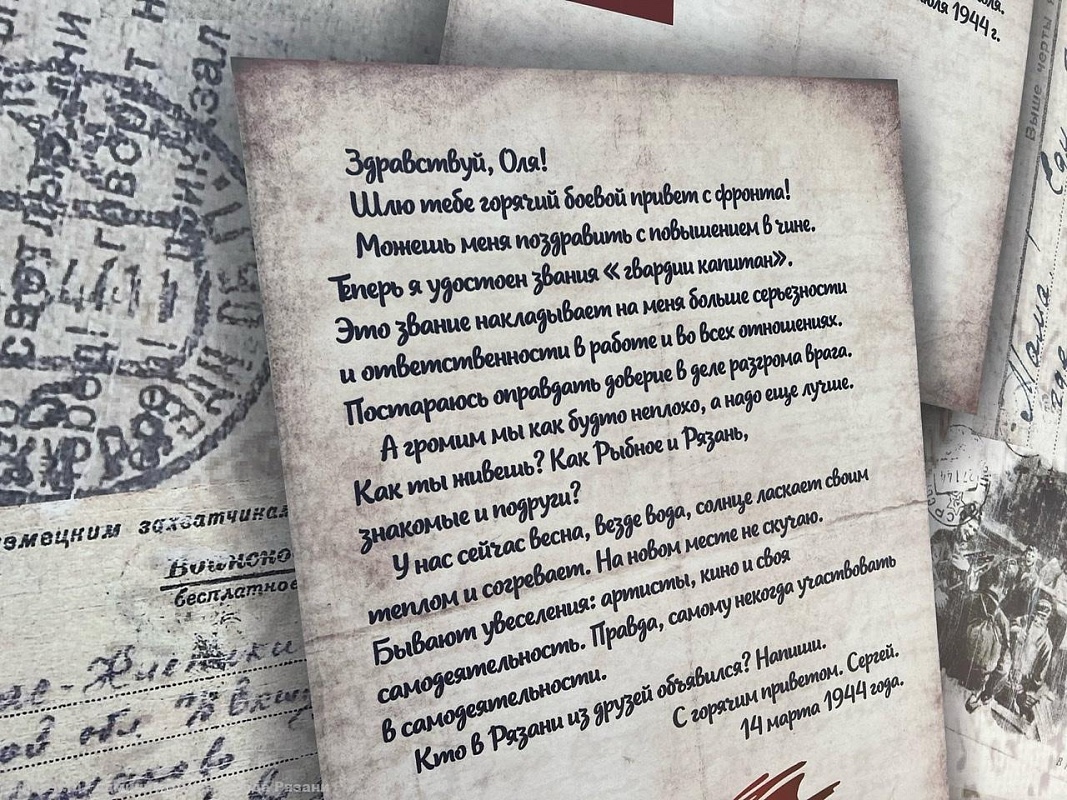 Здравствуй, Оля!
Шлю тебе горячий боевой привет с фронта!
Можешь меня поздравить с повышением в чине.
Теперь я удостоен звания «гвардии капитан».
Это звание накладывает на меня больше серьезности
и ответственности в работе и во всех отношениях.
Постараюсь оправдать доверие в деле разгрома врага.
А громим мы как будто неплохо, а надо еще лучше.
Как ты живешь? Как Рыбное и Рязань,
знакомые и подруги?
У нас сейчас весна, везде вода, солнце ласкает своим
теплом и согревает. На новом месте не скучаю.
Бывают увеселения: артисты, кино и своя
самодеятельность. Правда, самому некогда участвовать
в самодеятельности.
Кто в Рязани из друзей объявился? Напиши.
С горячим приветом. Сергей.
14 марта 1944 года.
1944 г.
Выше черты
захватчикам
бесплатное
Рязани